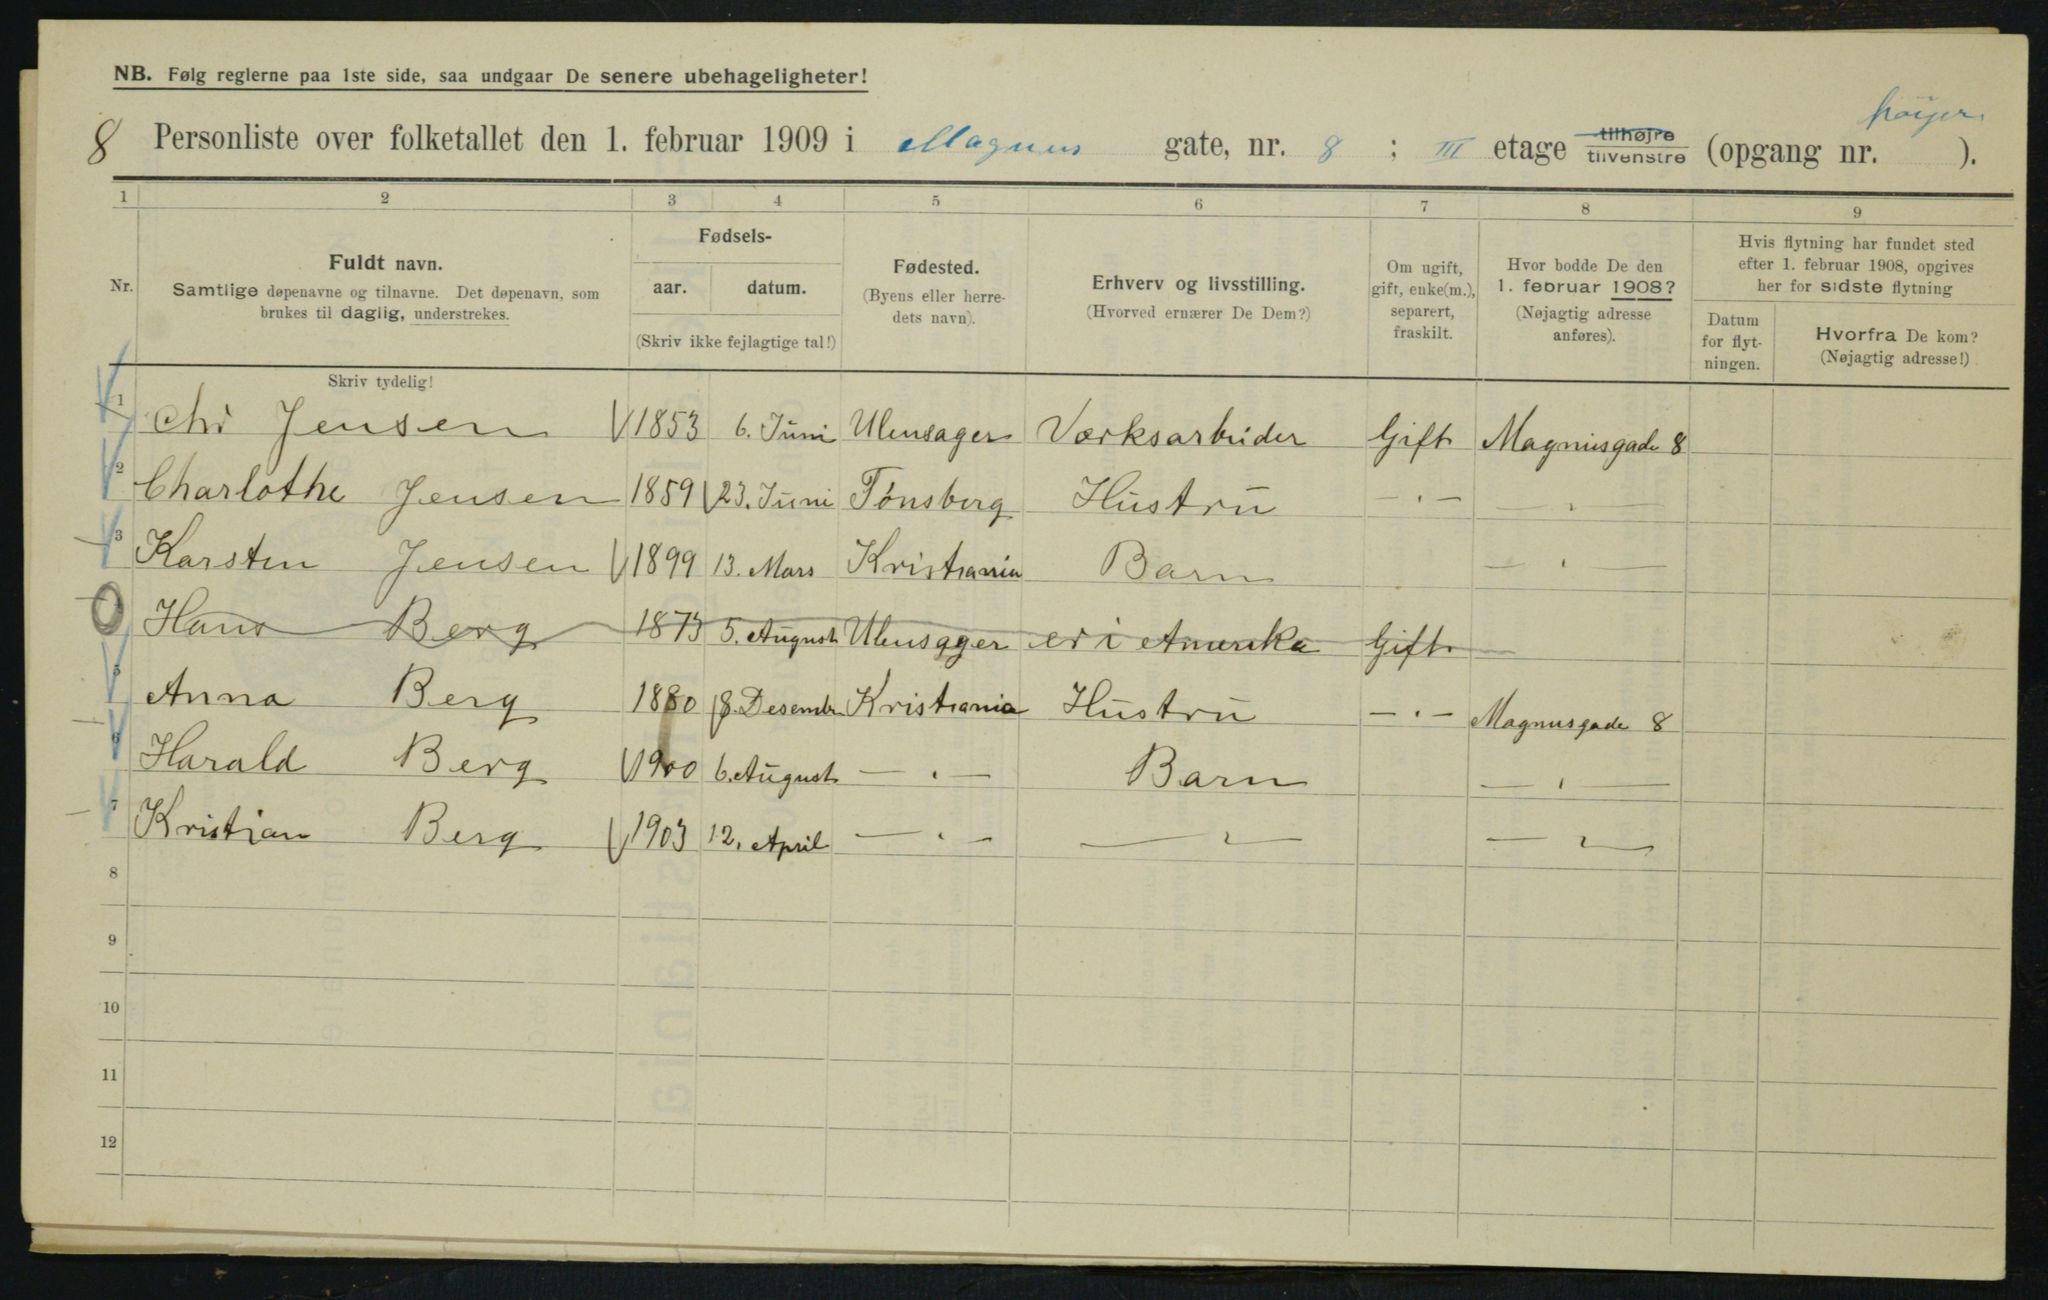 NB. Følg reglerne paa 1ste side, saa undgaar De senere ubehageligheter!
8 Personliste over folketallet den 1. februar 1909 i Magnus gate, nr. 8 ; III etage tilhøjre tilvenstre (opgang nr. ).
1 2 3 4 5 6 7 8 9
Nr.
Fuldt navn.
Samtlige døpenavne og tilnavne. Det døpenavn, som
brukes til daglig, understrekes.
Skriv tydelig!
Fødsels-
aar. datum.
(Skriv ikke fejlagtige tal!)
Fødested.
(Byens eller herre-
dets navn).
Erhverv og livsstilling.
(Hvorved ernærer De Dem?)
Om ugift,
gift, enke(m.),
separert,
fraskilt.
Hvor bodde De den
1. februar 1908?
(Nøjagtig adresse
anføres).
Hvis flytning har fundet sted
efter 1. februar 1908, opgives
her for sidste flytning
Datum
for flyt-
ningen.
Hvorfra De kom?
(Nøjagtig adresse!)
1 Chr Jensen 1853 6. Juni Ulensager Værksarbeider Gift Magnusgade 8
2 Charlothe Jensen 1859 23. Juni Tønsberg Hustru — " — — " —
3 Karsten Jensen 1899 13. Mars Kristiania Barn — " —
Hans Berg 1873 5. August Ulensager er i Amerika Gift
5 Anna Berg 1880 8. Desembr Kristiania Hustru — " — Magnusgade 8
6 Harald Berg 1900 6. August — " — Barn — " —
7 Kristian Berg 1903 12. April — " — — " — — " —
8
9
10
11
12